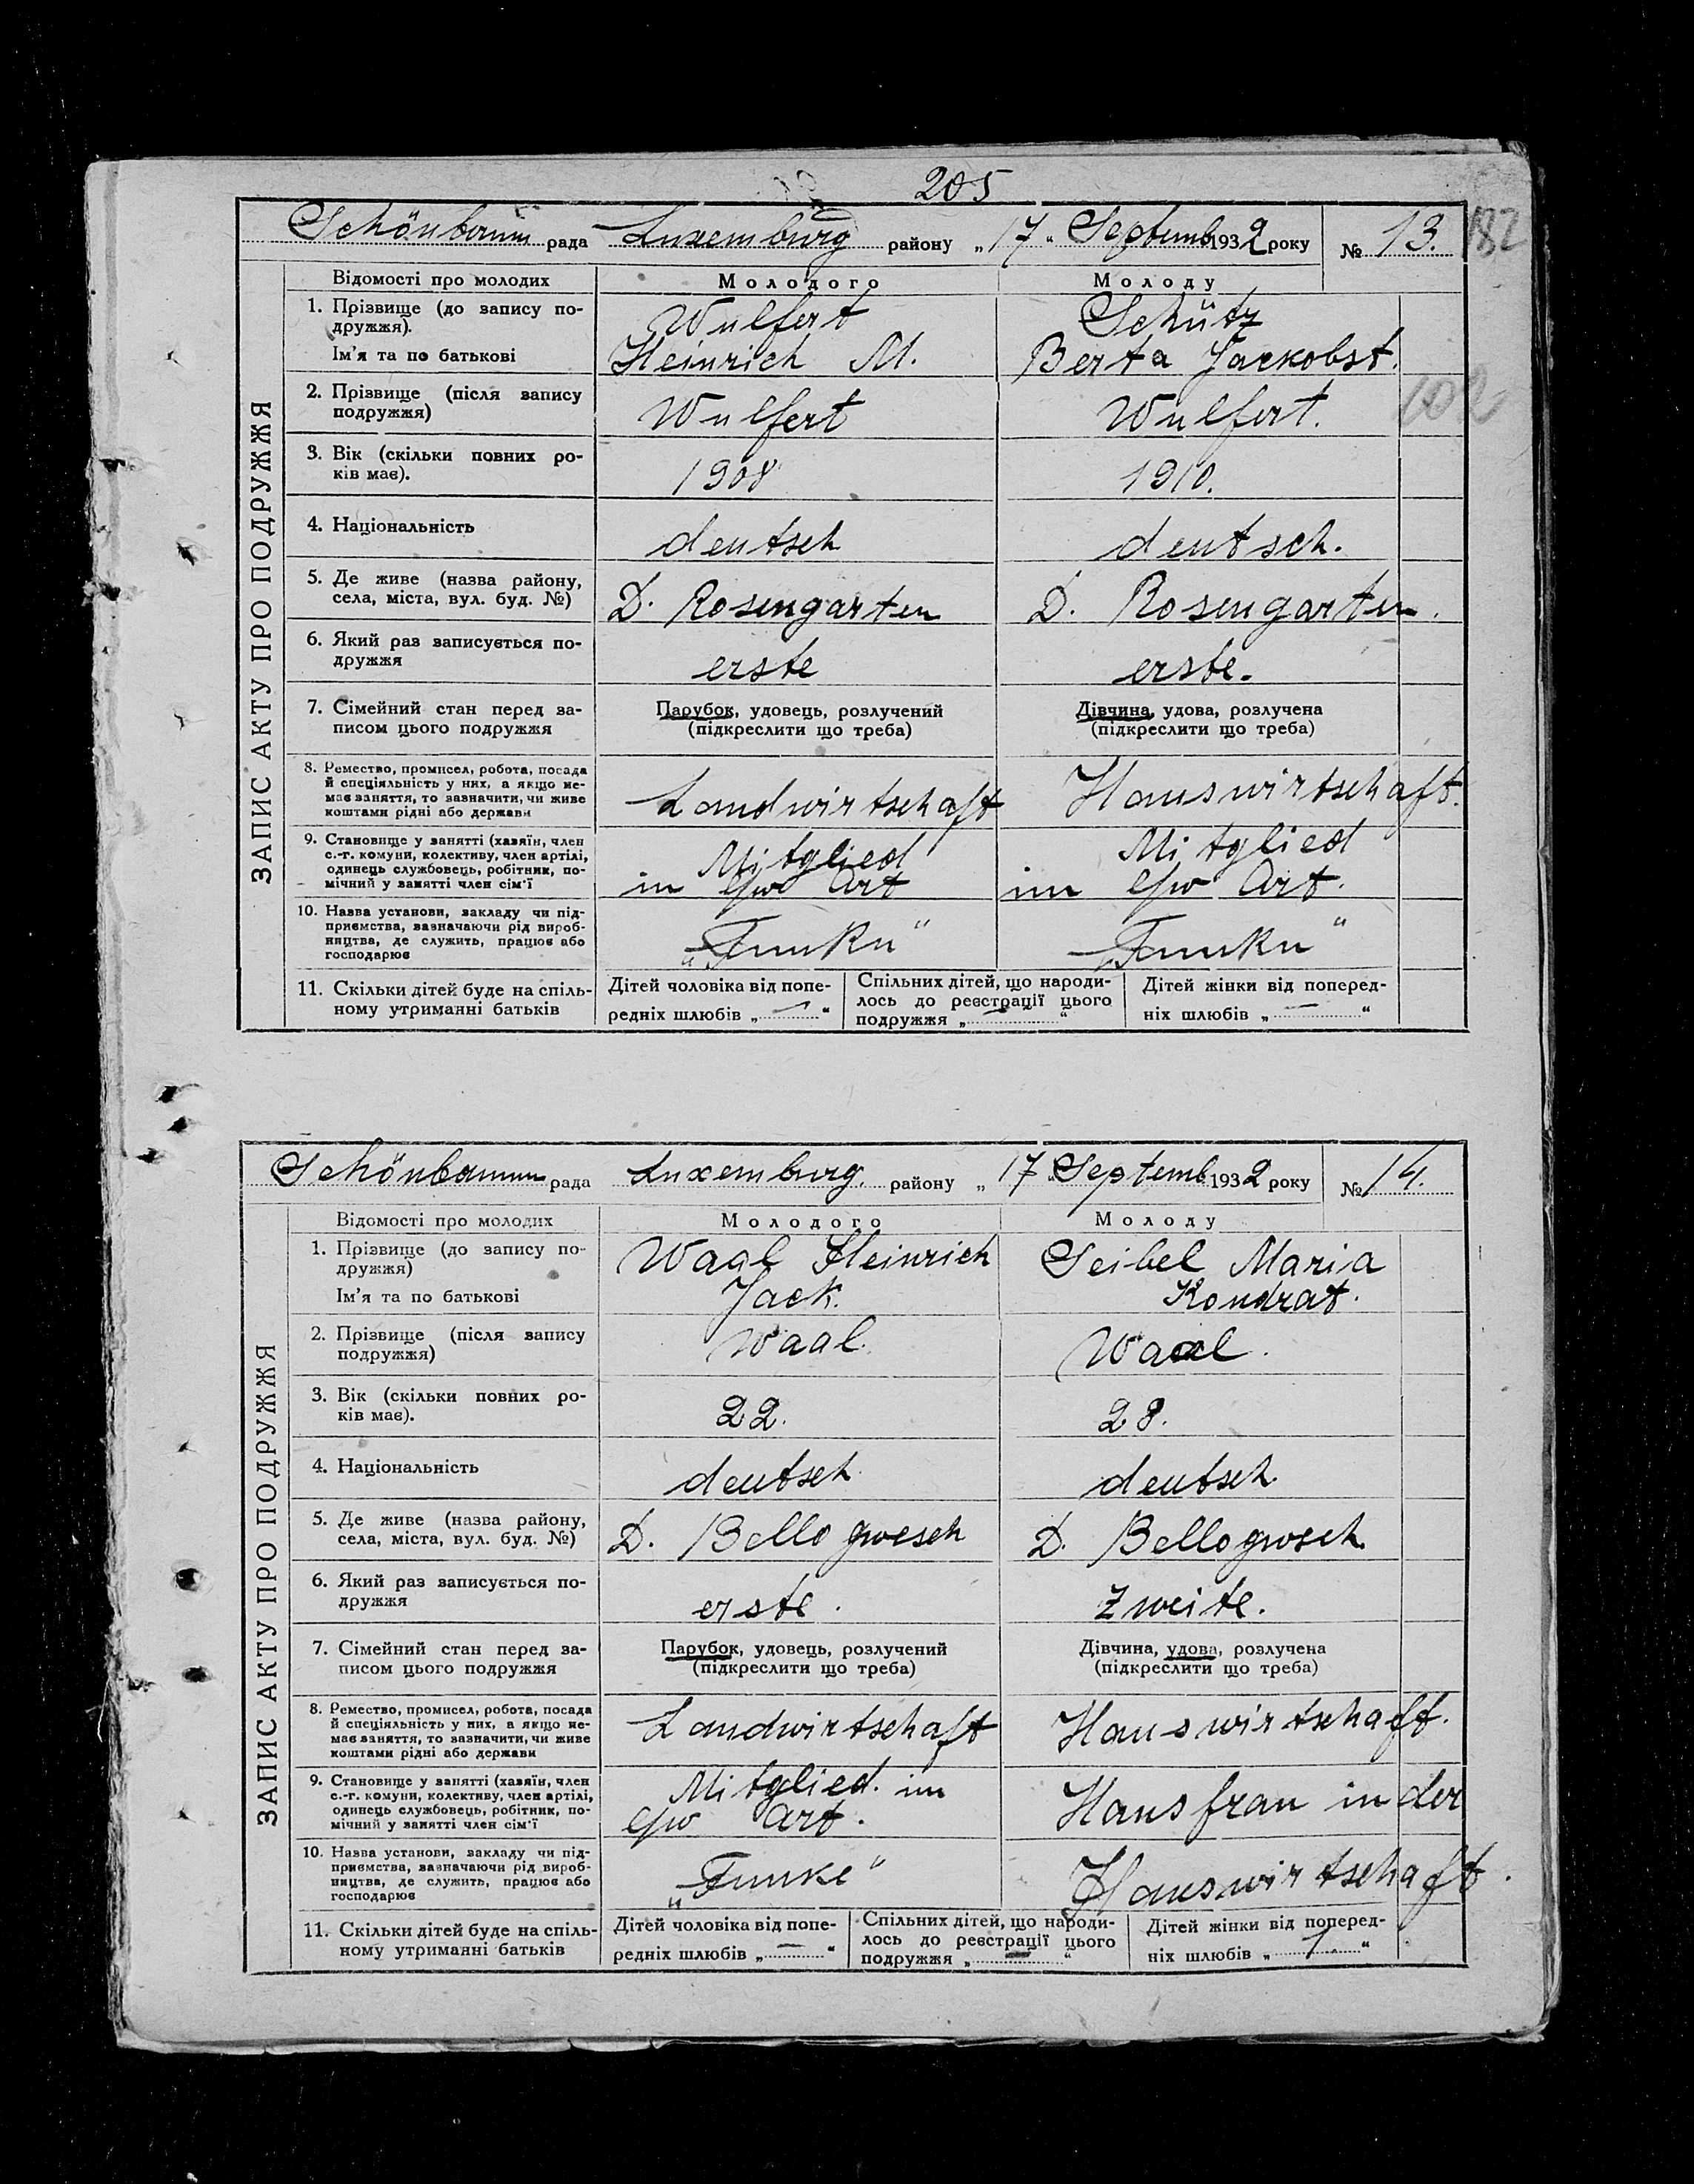 205
Schönbaum рада Luxemburg району „17“ Septemb. 1932 року № 13.
182
ЗАПИС АКТУ ПРО ПОДРУЖЖЯ
Відомості про молодих Молодого Молоду
1. Прізвище (до запису по- Wulfert Schütz
дружжя).
Ім'я та по батькові Heinrich M. Berta Jackobst.
2. Прізвище (після запису
подружжя) Wulfert Wulfert.
102
3. Вік (скільки повних ро-
ків має). 1908 1910.
4. Національність deutsch deutsch.
5. Де живе (назва району,
села, міста, вул. буд. №) D. Rosengarten D. Rosengarten.
6. Який раз записується по-
дружжя erste erste.
7. Сімейний стан перед за- Парубок, удовець, розлучений Дівчина, удова, розлучена
писом цього подружжя (підкреслити що треба) (підкреслити що треба)
8. Ремество, промисел, робота, посада
й спеціяльність у них, а якщо не-
має заняття, то зазначити, чи живе Landwirtschaft Hauswirtschaft.
коштами рідні або держави
9. Становище у занятті (хазяїн, член Mitglied Mitglied
с.-г. комуни, колективу, член артілі,
одинець службовець, робітник, по- im Art im Art.
мічний у занятті член сім'ї
10. Назва установи, закладу чи під-
приємства, зазначаючи рід вироб- „Funkn“ „Funkn“
ництва, де служить, працює або
господарює
11. Скільки дітей буде на спіль- Дітей чоловіка від попе- Спільних дітей, що народи- Дітей жінки від поперед-
ному утриманні батьків редніх шлюбів „—“ лось до реєстрації цього ніх шлюбів „—“
подружжя „—“
Schönbaum рада Luxemburg. району „17“ Septemb. 1932 року № 14.
ЗАПИС АКТУ ПРО ПОДРУЖЖЯ
Відомості про молодих Молодого Молоду
1. Прізвище (до запису по- Waal Heinrich Seibel Maria
дружжя)
Ім'я та по батькові Jack. Kondrat.
2. Прізвище (після запису
подружжя) Waal. Waal.
3. Вік (скільки повних ро-
ків має). 22. 28.
4. Національність deutsch deutsch.
5. Де живе (назва району,
села, міста, вул. буд. №) D. Bellogwesch D. Bellogwsch.
6. Який раз записується по-
дружжя erste. zweite.
7. Сімейний стан перед за- Парубок, удовець, розлучений Дівчина, удова, розлучена
писом цього подружжя (підкреслити що треба) (підкреслити що треба)
8. Ремество, промисел, робота, посада
й спеціяльність у них, а якщо не- Landwirtschaft Hauswirtschaft.
має заняття, то зазначити, чи живе
коштами рідні або держави
9. Становище у занятті (хазяїн, член Mitglied. im
с.-г. комуни, колективу, член артілі, Hausfrau in der
одинець службовець, робітник, по- Art.
мічний у занятті член сім'ї
10. Назва установи, закладу чи під-
приємства, зазначаючи рід вироб- „Funke“ Hauswirtschaft.
ництва, де служить, працює або
господарює
11. Скільки дітей буде на спіль- Дітей чоловіка від попе- Спільних дітей, що народи- Дітей жінки від поперед-
ному утриманні батьків редніх шлюбів „—“ лось до реєстрації цього ніх шлюбів „1.“
подружжя „—“